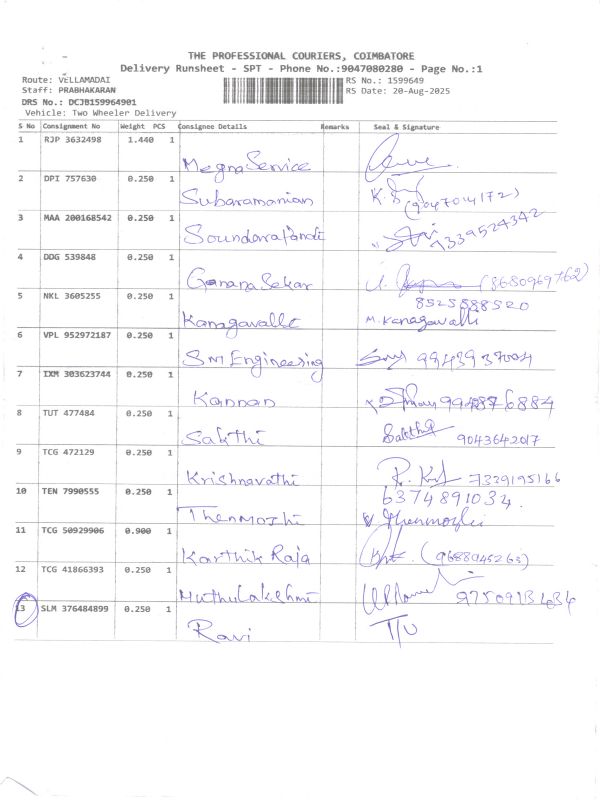 THE PROFESSIONAL COURIERS, COIMBATORE
Delivery Runsheet - SPT - Phone No.:9047080280 - Page No.:1
Route: VELLAMADAI RS No.: 1599649
Staff: PRABHAKARAN RS Date: 20-Aug-2025
DRS No.: DCJB159964901
Vehicle: Two Wheeler Delivery
S No Consignment No Weight PCS Consignee Details Remarks Seal & Signature
1 RJP 3632498 1.440 1
Megna Service
2 DPI 757630 0.250 1
Subaramanian K.S (9047014172)
3 MAA 200168542 0.250 1
Soundarapandi 7339524342
4 DDG 539848 0.250 1
Ganana Sekar (8680969762)
5 NKL 3605255 0.250 1 8525888520
Kanagavalle M. Kanagavalli
6 VPL 952972187 0.250 1
Sm Engineering 9943937004
7 IXM 303623744 0.250 1
Kannan
8 TUT 477484 0.250 1
Sakthi Sakthi 9043642017
9 TCG 472129 0.250 1
Krishnavathi 7339195166
10 TEN 7990555 0.250 1 6374891034.
Thenmozhi Thenmozhi
11 TCG 50929906 0.900 1
Karthik Raja (9688045263)
12 TCG 41866393 0.250 1
Muthulakshmi
13 SLM 376484899 0.250 1
Ravi T/U